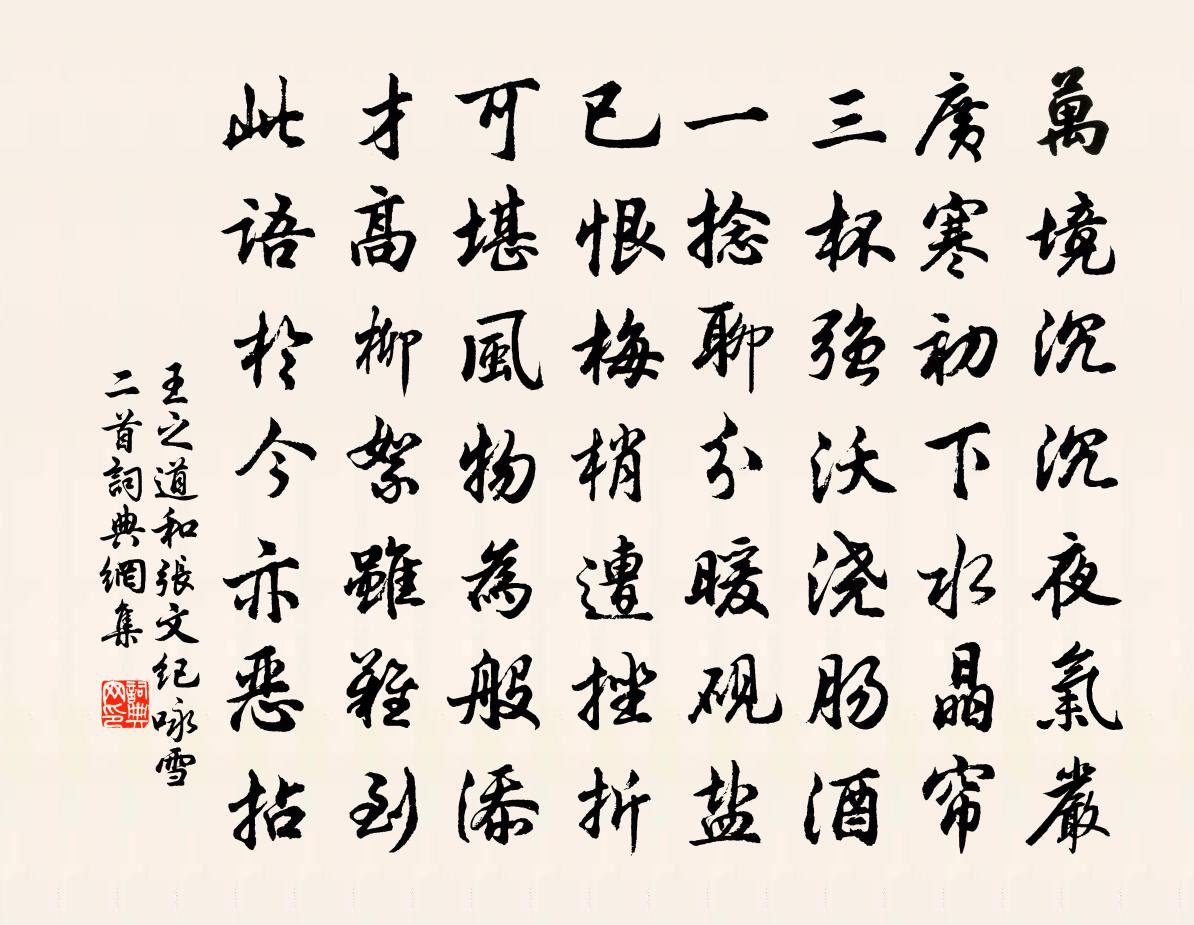 萬境沉沉夜氣嚴
廣寒初下水晶帘
三杯强沃浇肠酒
一捻聊分暖砚盐
已恨梅梢遭挫折
可堪風物為般添
才高柳絮雖難到
此語於今亦惡拈
王之道和張文紀咏雪
二首詞典網集
詞典
网印